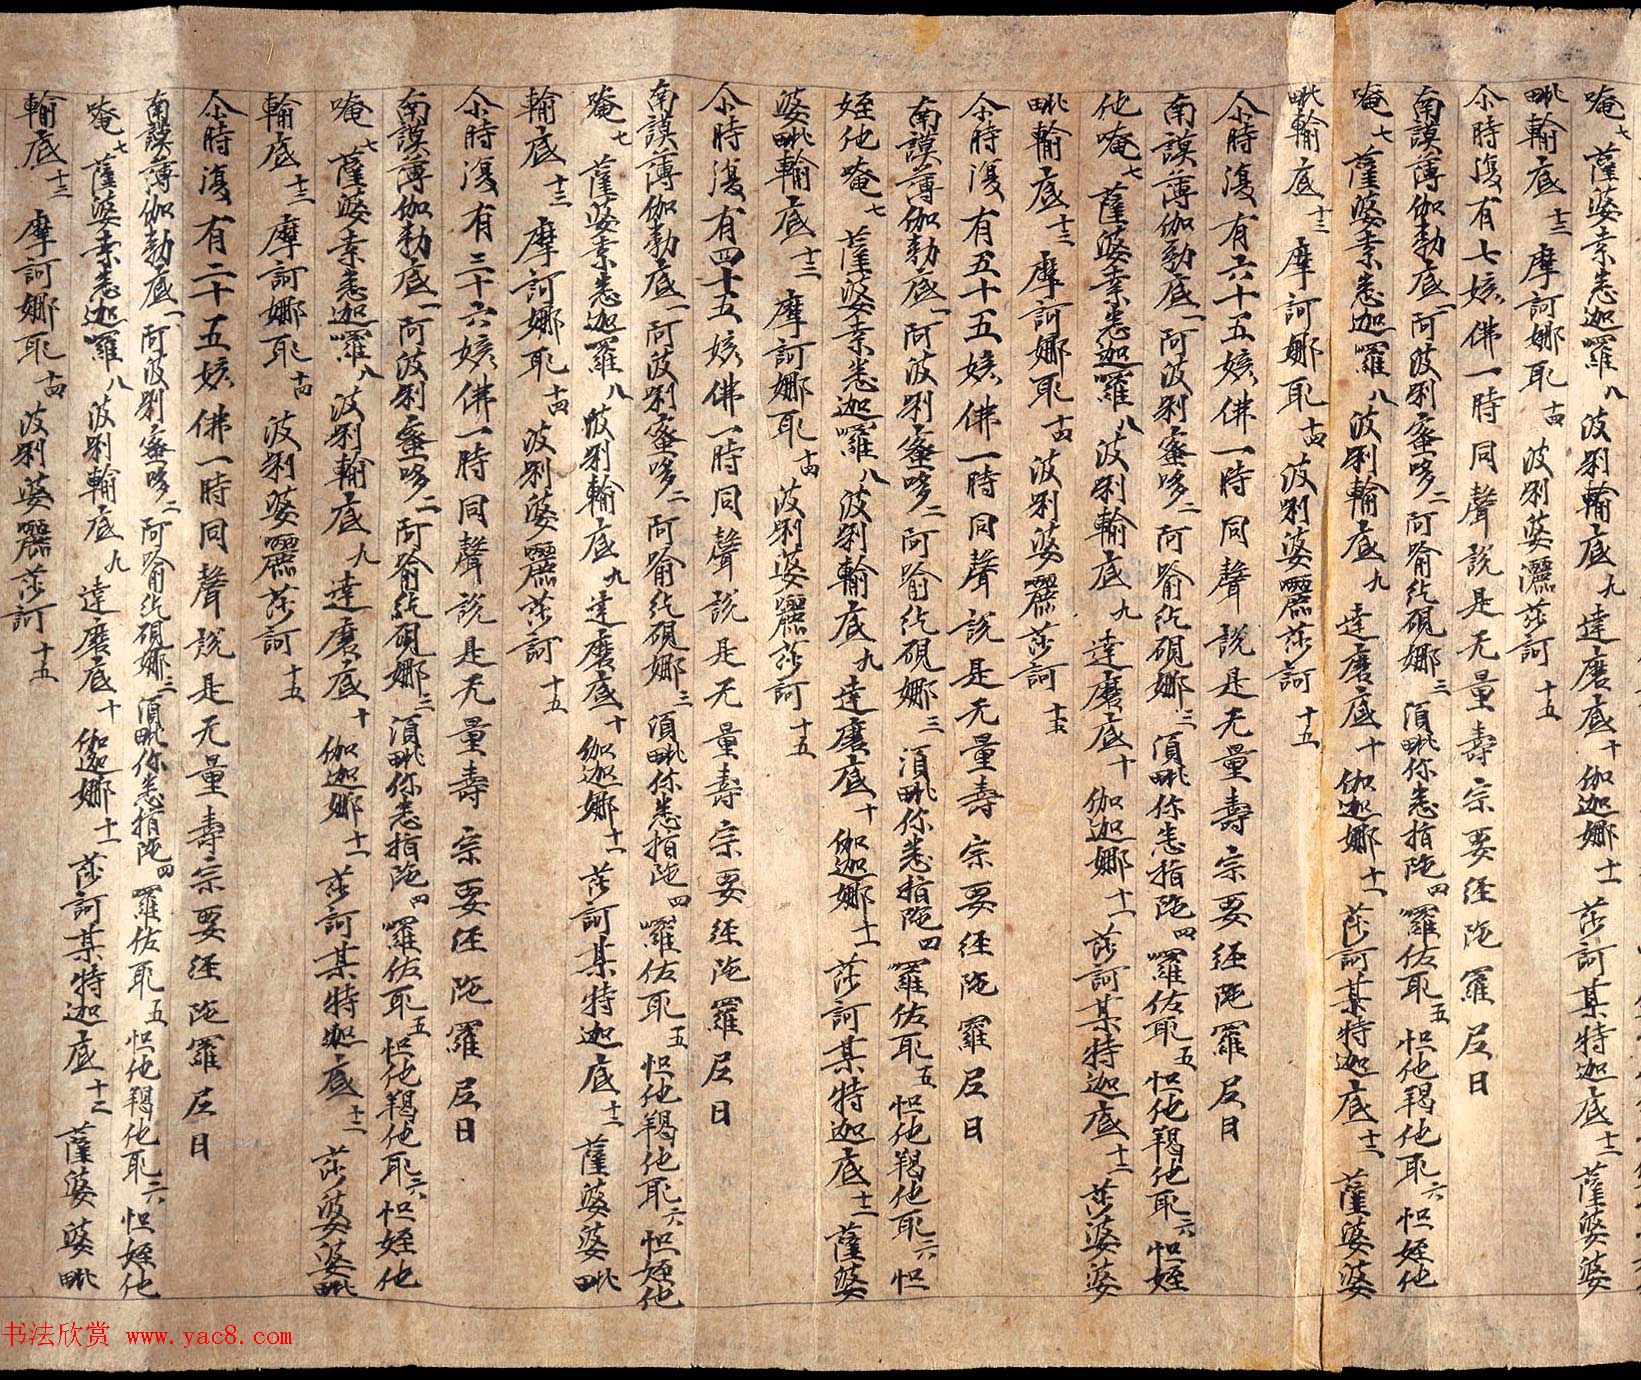 唵七 薩婆桒悉迦羅八 波唎輸底九 達磨底十 伽迦娜十一 莎訶某特迦底十二 薩婆婆
毗輸底十三 摩訶娜耶十四 波唎婆灑莎訶十五
尒時復有七姟佛一時同聲說是无量壽宗要經陁羅尼曰
南謨薄伽勃底一 阿波唎蜜哆二 阿喻紇硯娜三 湏毗你悉指陁四 囉佐耶五 怛他羯他耶六 怛姪他
唵七 薩婆桒悉迦羅八 波唎輸底九 達磨底十 伽迦娜十一 莎訶某特迦底十二 薩婆婆
毗輸底十三 摩訶娜耶十四 波唎婆囇莎訶十五
尒時復有六十五姟佛一時同聲說是无量壽宗要經陁羅尼曰
南謨薄伽勃底一 阿波唎蜜哆二 阿喻紇硯娜三 湏毗你悉指陁四 囉佐耶五 怛他羯他耶六 怛姪
他唵七 薩婆桒悉迦羅八 波唎輸底九 達磨底十 伽迦娜十一 莎訶某特迦底十二 莎婆婆
毗輸底十三 摩訶娜耶十四 波唎婆囇莎訶十五
尒時復有五十五姟佛一時同聲說是无量壽宗要經陁羅尼曰
南謨薄伽勃底一 阿波唎蜜哆二 阿喻紇硯娜三 湏毗你悉指陁四 羅佐耶五 怛他羯他耶六 怛
姪他唵七 薩婆桒悉迦囉八 波唎輸底九 達磨底十 伽迦娜十一 莎訶某特迦底十二 薩婆
婆毗輸底十三 摩訶娜耶十四 波唎婆囇莎訶十五
尒時復有四十五姟佛一時同聲說是无量壽宗要經陁羅尼曰
南謨薄伽勃底一 阿波唎蜜哆二 阿喻紇硯娜三 湏毗你悉指陁四 囉佐耶五 怛他羯他耶六 怛姪他
唵七 薩婆桒悉迦羅八 波唎輸底九 達磨底十 伽迦娜十一 莎訶某特迦底十二 薩婆婆毗
輸底十三 摩訶娜耶十四 波唎婆囇莎訶十五
尒時復有三十六姟佛一時同聲說是无量壽宗要經陁羅尼曰
南謨薄伽勃底一 阿波唎蜜哆二 阿喻紇硯娜三 湏毗你悉指陁四 囉佐耶五 怛他羯他耶六 怛姪他
唵七 薩婆桒悉迦囉八 波唎輸底九 達磨底十 伽迦娜十一 莎訶某特迦底十二 莎婆婆毗
輸底十三 摩訶娜耶十四 波唎婆囇莎訶十五
尒時復有二十五姟佛一時同聲說是无量壽宗要經陁羅尼曰
南謨薄伽勃底一 阿波唎蜜哆二 阿喻紇硯娜三 湏毗你悉指陁四 羅佐耶五 怛他羯他耶六 怛姪他
唵七 薩婆桒悉迦羅八 波唎輸底九 達磨底十 伽迦娜十一 莎訶某特迦底十二 薩婆婆毗
輸底十三 摩訶娜耶十四 波唎婆囇莎訶十五
书法欣赏 www.yac8.com